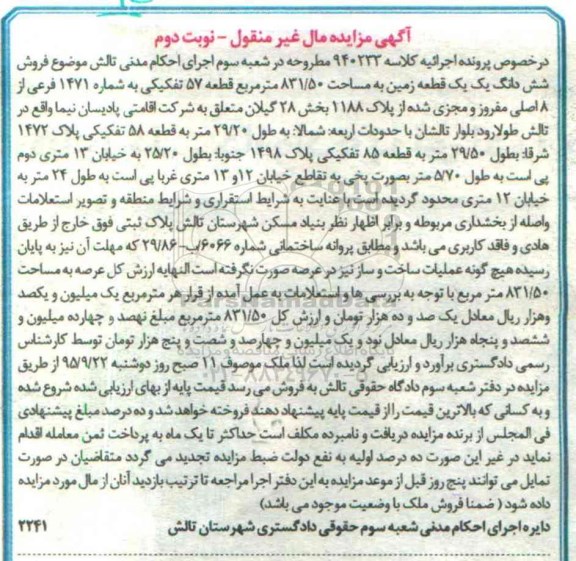 آگهی مزایده مال غیر منقول - نوبت دوم
درخصوص پرونده اجرائیه کلاسه ۹۴۰۲۳۳ مطروحه در شعبه سوم اجرای احکام مدنی تالش موضوع فروش
شش دانگ یک یک قطعه زمین به مساحت ۸۳۱/۵۰ مترمربع قطعه ۵۷ تفکیکی به شماره ۱۴۷۱ فرعی از
۸ اصلی مفروز و مجزی شده از پلاک ۱۱۸۸ بخش ۲۸ گیلان متعلق به شرکت اقامتی پادیسان نیما واقع در
تالش طولارود بلوار تالشان با حدودات اربعه: شمالا: به طول ۲۹/۲۰ متر به قطعه ۵۸ تفکیکی پلاک ۱۴۷۲
شرقا: بطول ۲۹/۵۰ متر به قطعه ۸۵ تفکیکی پلاک ۱۴۹۸ جنوبا: بطول ۲۵/۲۰ به خیابان ۱۳ متری دوم
پی است به طول ۵/۷۰ متر بصورت پخی به تقاطع خیابان ۱۲و ۱۳ متری غربا پی است به طول ۲۴ متر به
خیابان ۱۲ متری محدود گردیده است با عنایت به شرایط استقراری و شرایط منطقه و تصویر استعلامات
واصله از بخشداری مربوطه و برابر اظهار نظر بنیاد مسکن شهرستان تالش پلاک ثبتی فوق خارج از طریق
هادی و فاقد کاربری می باشد و مطابق پروانه ساختمانی شماره ۶۰۶۶/ب-۲۹/۸۶ که مهلت آن نیز به پایان
رسیده هیچ گونه عملیات ساخت و ساز نیز در عرصه صورت نگرفته است النهایه ارزش کل عرصه به مساحت
۸۳۱/۵۰ متر مربع با توجه به بررسی ها و استعلامات به عمل آمده از قرار هر مترمربع یک میلیون و یکصد
وهزار ریال معادل یک صد و ده هزار تومان و ارزش کل ۸۳۱/۵۰ مترمربع مبلغ نهصد و چهارده میلیون و
ششصد و پنجاه هزار ریال معادل نود و یک میلیون و چهارصد و شصت و پنج هزار تومان توسط کارشناس
رسمی دادگستری برآورد و ارزیابی گردیده است لذا ملک موصوف ۱۱ صبح روز دوشنبه ۹۵/۹/۲۲ از طریق
مزایده در دفتر شعبه سوم دادگاه حقوقی تالش به فروش می رسد قیمت پایه از بهای ارزیابی شده شروع شده
و به کسانی که بالاترین قیمت را از قیمت پایه پیشنهاد دهند فروخته خواهد شد و ده درصد مبلغ پیشنهادی
فی المجلس از برنده مزایده دریافت و نامبرده مکلف است حداکثر تا یک ماه به پرداخت ثمن معامله اقدام
نماید در غیر این صورت ده درصد اولیه به نفع دولت ضبط مزایده تجدید می گردد متقاضیان در صورت
تمایل می توانند پنج روز قبل از موعد مزایده به این دفتر اجرا مراجعه تا ترتیب بازدید آنان از مال مورد مزایده
داده شود ( ضمنا فروش ملک با وضعیت موجود می باشد)
دایره اجرای احکام مدنی شعبه سوم حقوقی دادگستری شهرستان تالش ۲۲۴۱